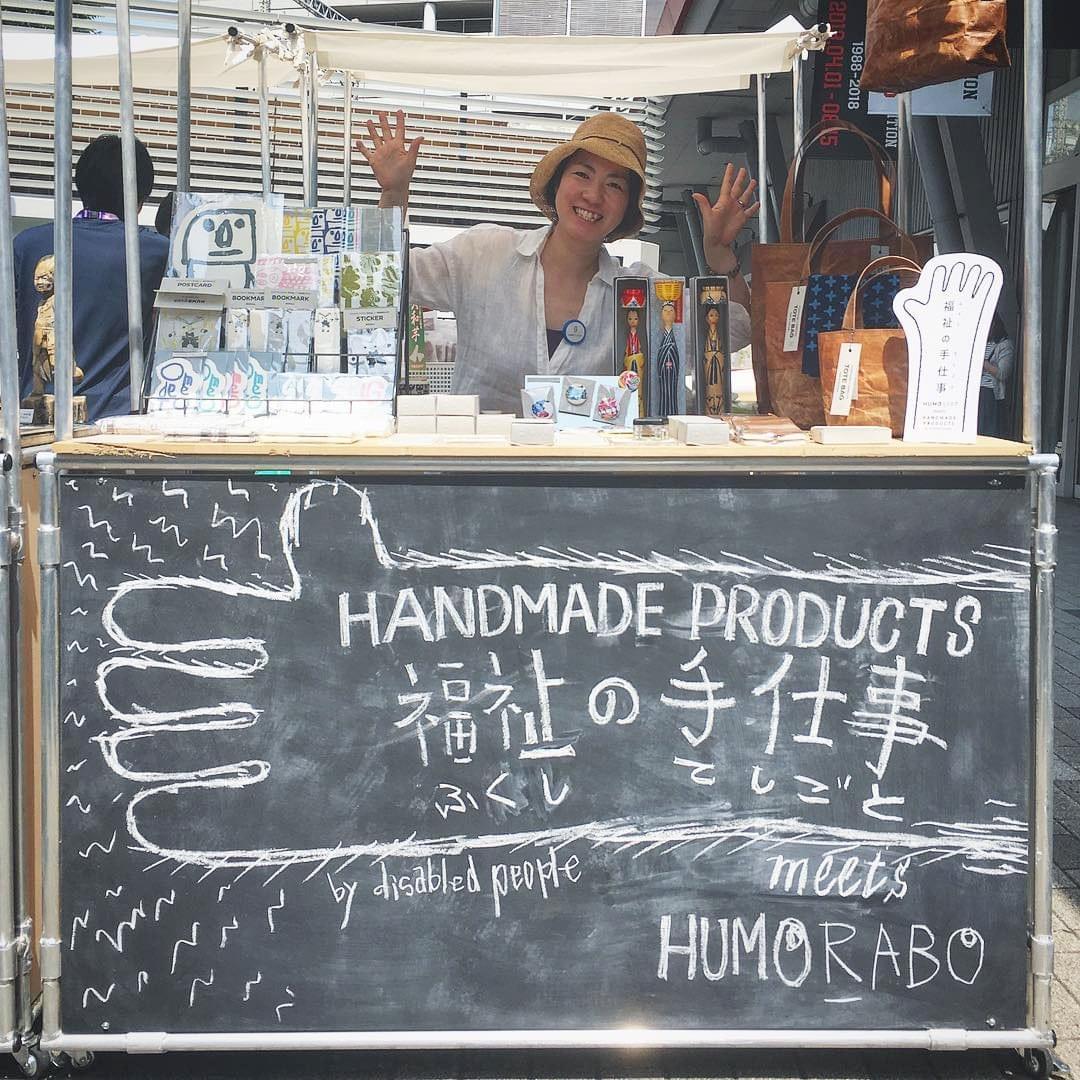 1988-2018
POSTCARD
BOOKMARK
BOOKMARK
STICKER
TOTE BAG
TOTE BAG
福祉の手仕事
HANDMADE
PRODUCTS
HANDMADE PRODUCTS
福祉の手仕事
ふくし てしごと
by disabled people
meets
HUMORABO